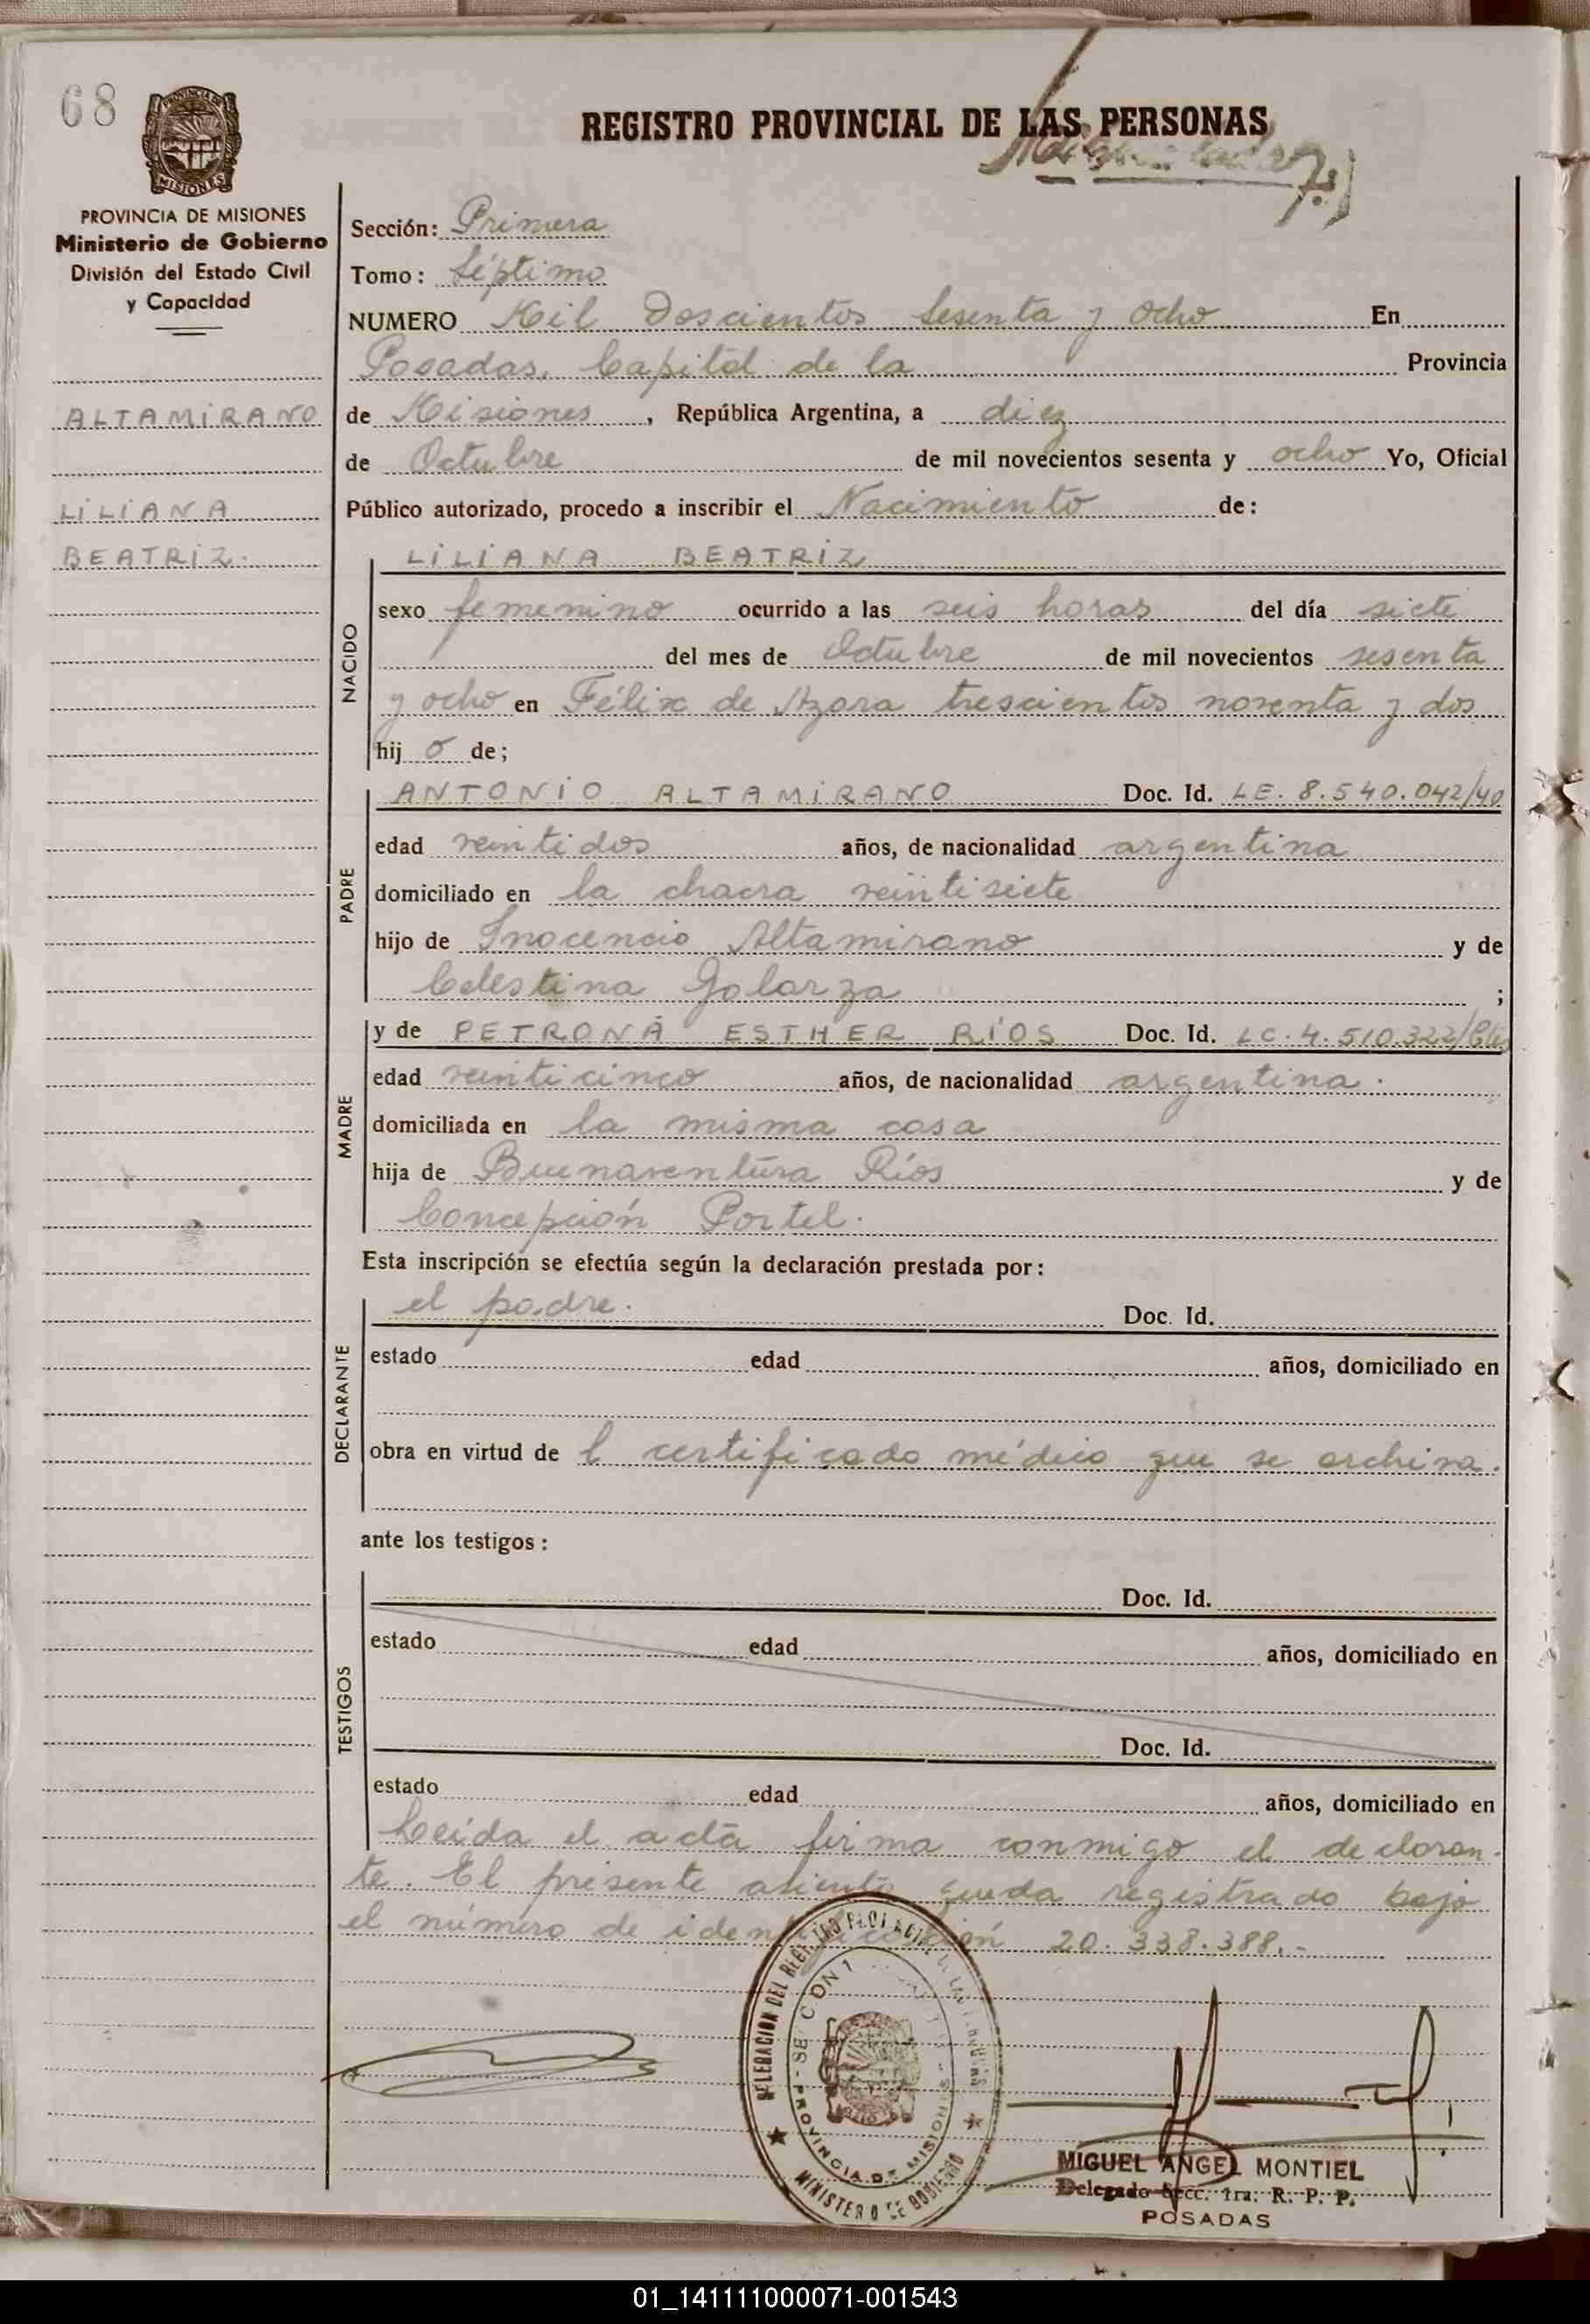 68
PROVINCIA DE MISIONES
Ministerio de Gobierno
División del Estado Civil
y Capacidad
ALTAMIRANO
LILIANA
BEATRIZ.
REGISTRO PROVINCIAL DE LAS PERSONAS
Sección: Primera
Tomo: Séptimo
NUMERO Mil Doscientos Sesenta y Ocho En
Posadas, Capital de la Provincia
de Misiones, República Argentina, a diez
de Octubre de mil novecientos sesenta y ocho Yo, Oficial
Público autorizado, procedo a inscribir el Nacimiento de:
NACIDO
LILIANA BEATRIZ
sexo femenino ocurrido a las seis horas del día siete
del mes de Octubre de mil novecientos sesenta
y ocho en Félix de Azara trescientos noventa y dos
hij a de;
PADRE
ANTONIO ALTAMIRANO Doc. Id. LE. 8.540.042/40
edad veintidos años, de nacionalidad argentina
domiciliado en la chacra veintisiete
hijo de Inocencio Altamirano y de
Celestina Golarza ;
MADRE
y de PETRONA ESTHER RÍOS Doc. Id. LC. 4.510.322
edad veinticinco años, de nacionalidad argentina.
domiciliada en la misma casa
hija de Buenaventura Ríos y de
Concepción Portel.
Esta inscripción se efectúa según la declaración prestada por:
DECLARANTE
el padre. Doc. Id.
estado edad años, domiciliado en
obra en virtud de l certificado médico que se archiva.
ante los testigos:
TESTIGOS
Doc. Id.
estado edad años, domiciliado en
Doc. Id.
estado edad años, domiciliado en
Leída el acta firma conmigo el declaran-
te. El presente asiento queda registrado bajo
el número de identificación 20.338.388.-
DELEGACION DEL REGISTRO PROVINCIAL DE LAS PERSONAS
SECCION 1
PROVINCIA DE MISIONES
MINISTERIO DE GOBIERNO
MIGUEL ANGEL MONTIEL
Delegado Secc. 1ra. R. P. P.
POSADAS
01_141111000071-001543